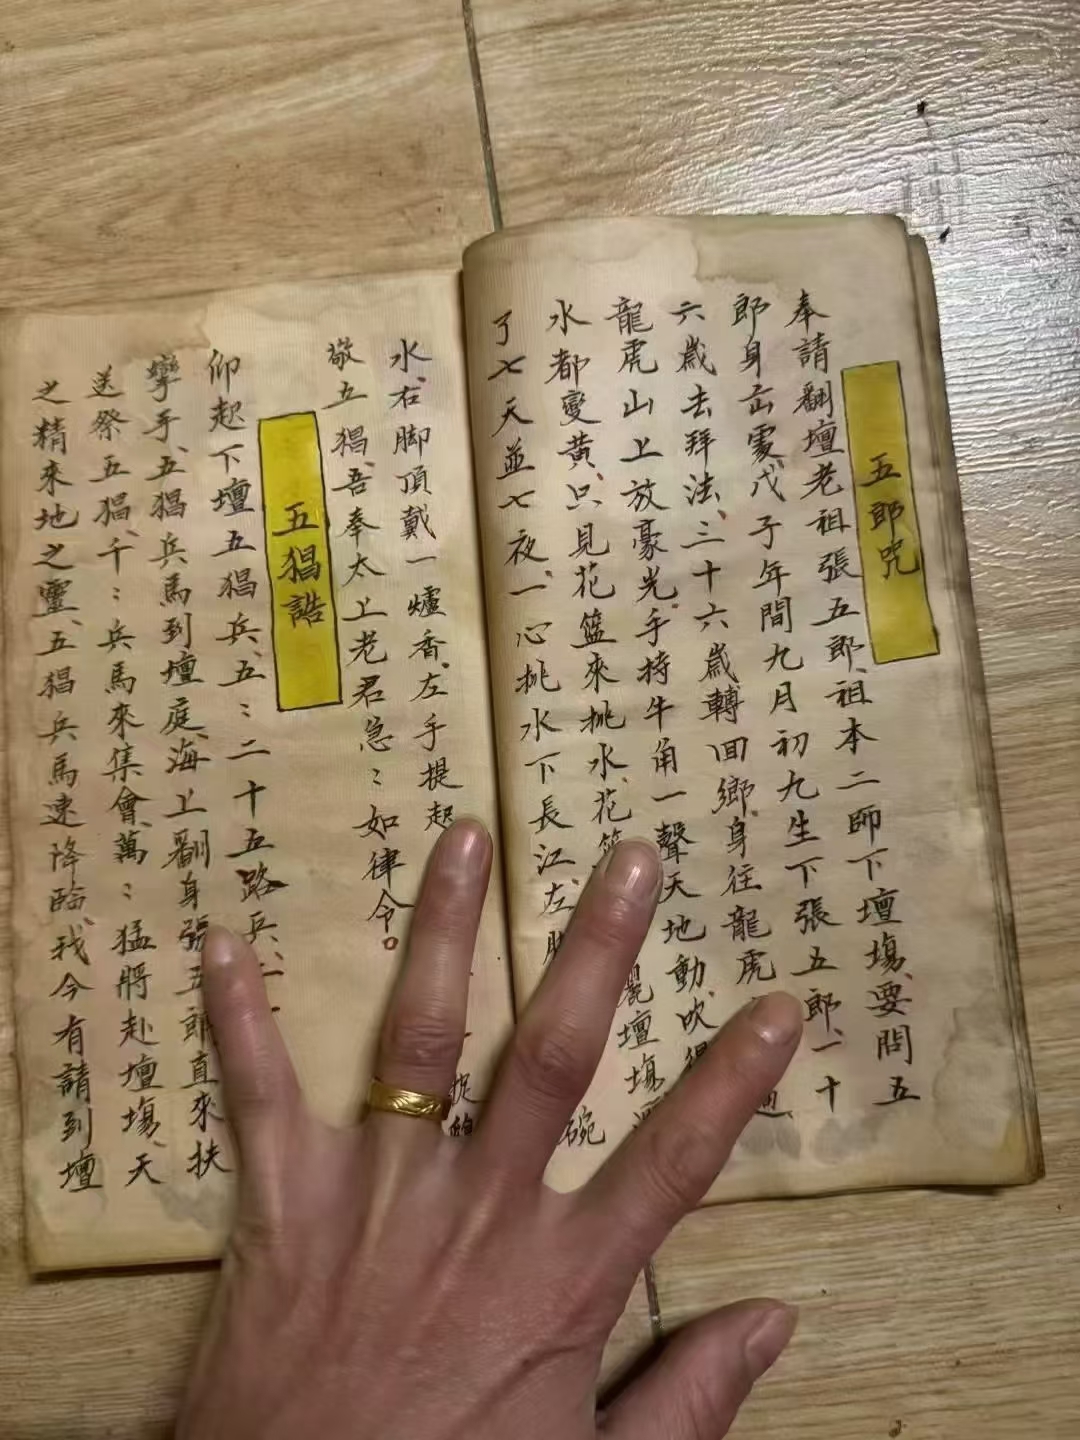 五郎咒
奉請翻壇老祖張五郎、祖本二師下壇塲、要問五
郎身去處、戊子年間九月初九生下張五郎、一十
六歲去拜法、三十六歲轉回鄉、身往龍虎
龍虎山上放豪光、手持牛角一聲天地動、吹得
水都變黃、只見花籃來挑水、花籃 壇塲
了七天並七夜、一心挑水下長江、左脚 碗
水、右脚頂戴一爐香、左手提起
敬五猖、吾奉太上老君急〻如律令。
五猖誥
仰起下壇五猖兵、五〻二十五路兵、
攣手、五猖兵馬到壇庭、海上翻身張五郎直來扶
送祭五猖、千〻兵馬來集會、萬〻猛將赴壇塲、天
之精來地之靈、五猖兵馬速降臨、我今有請到壇